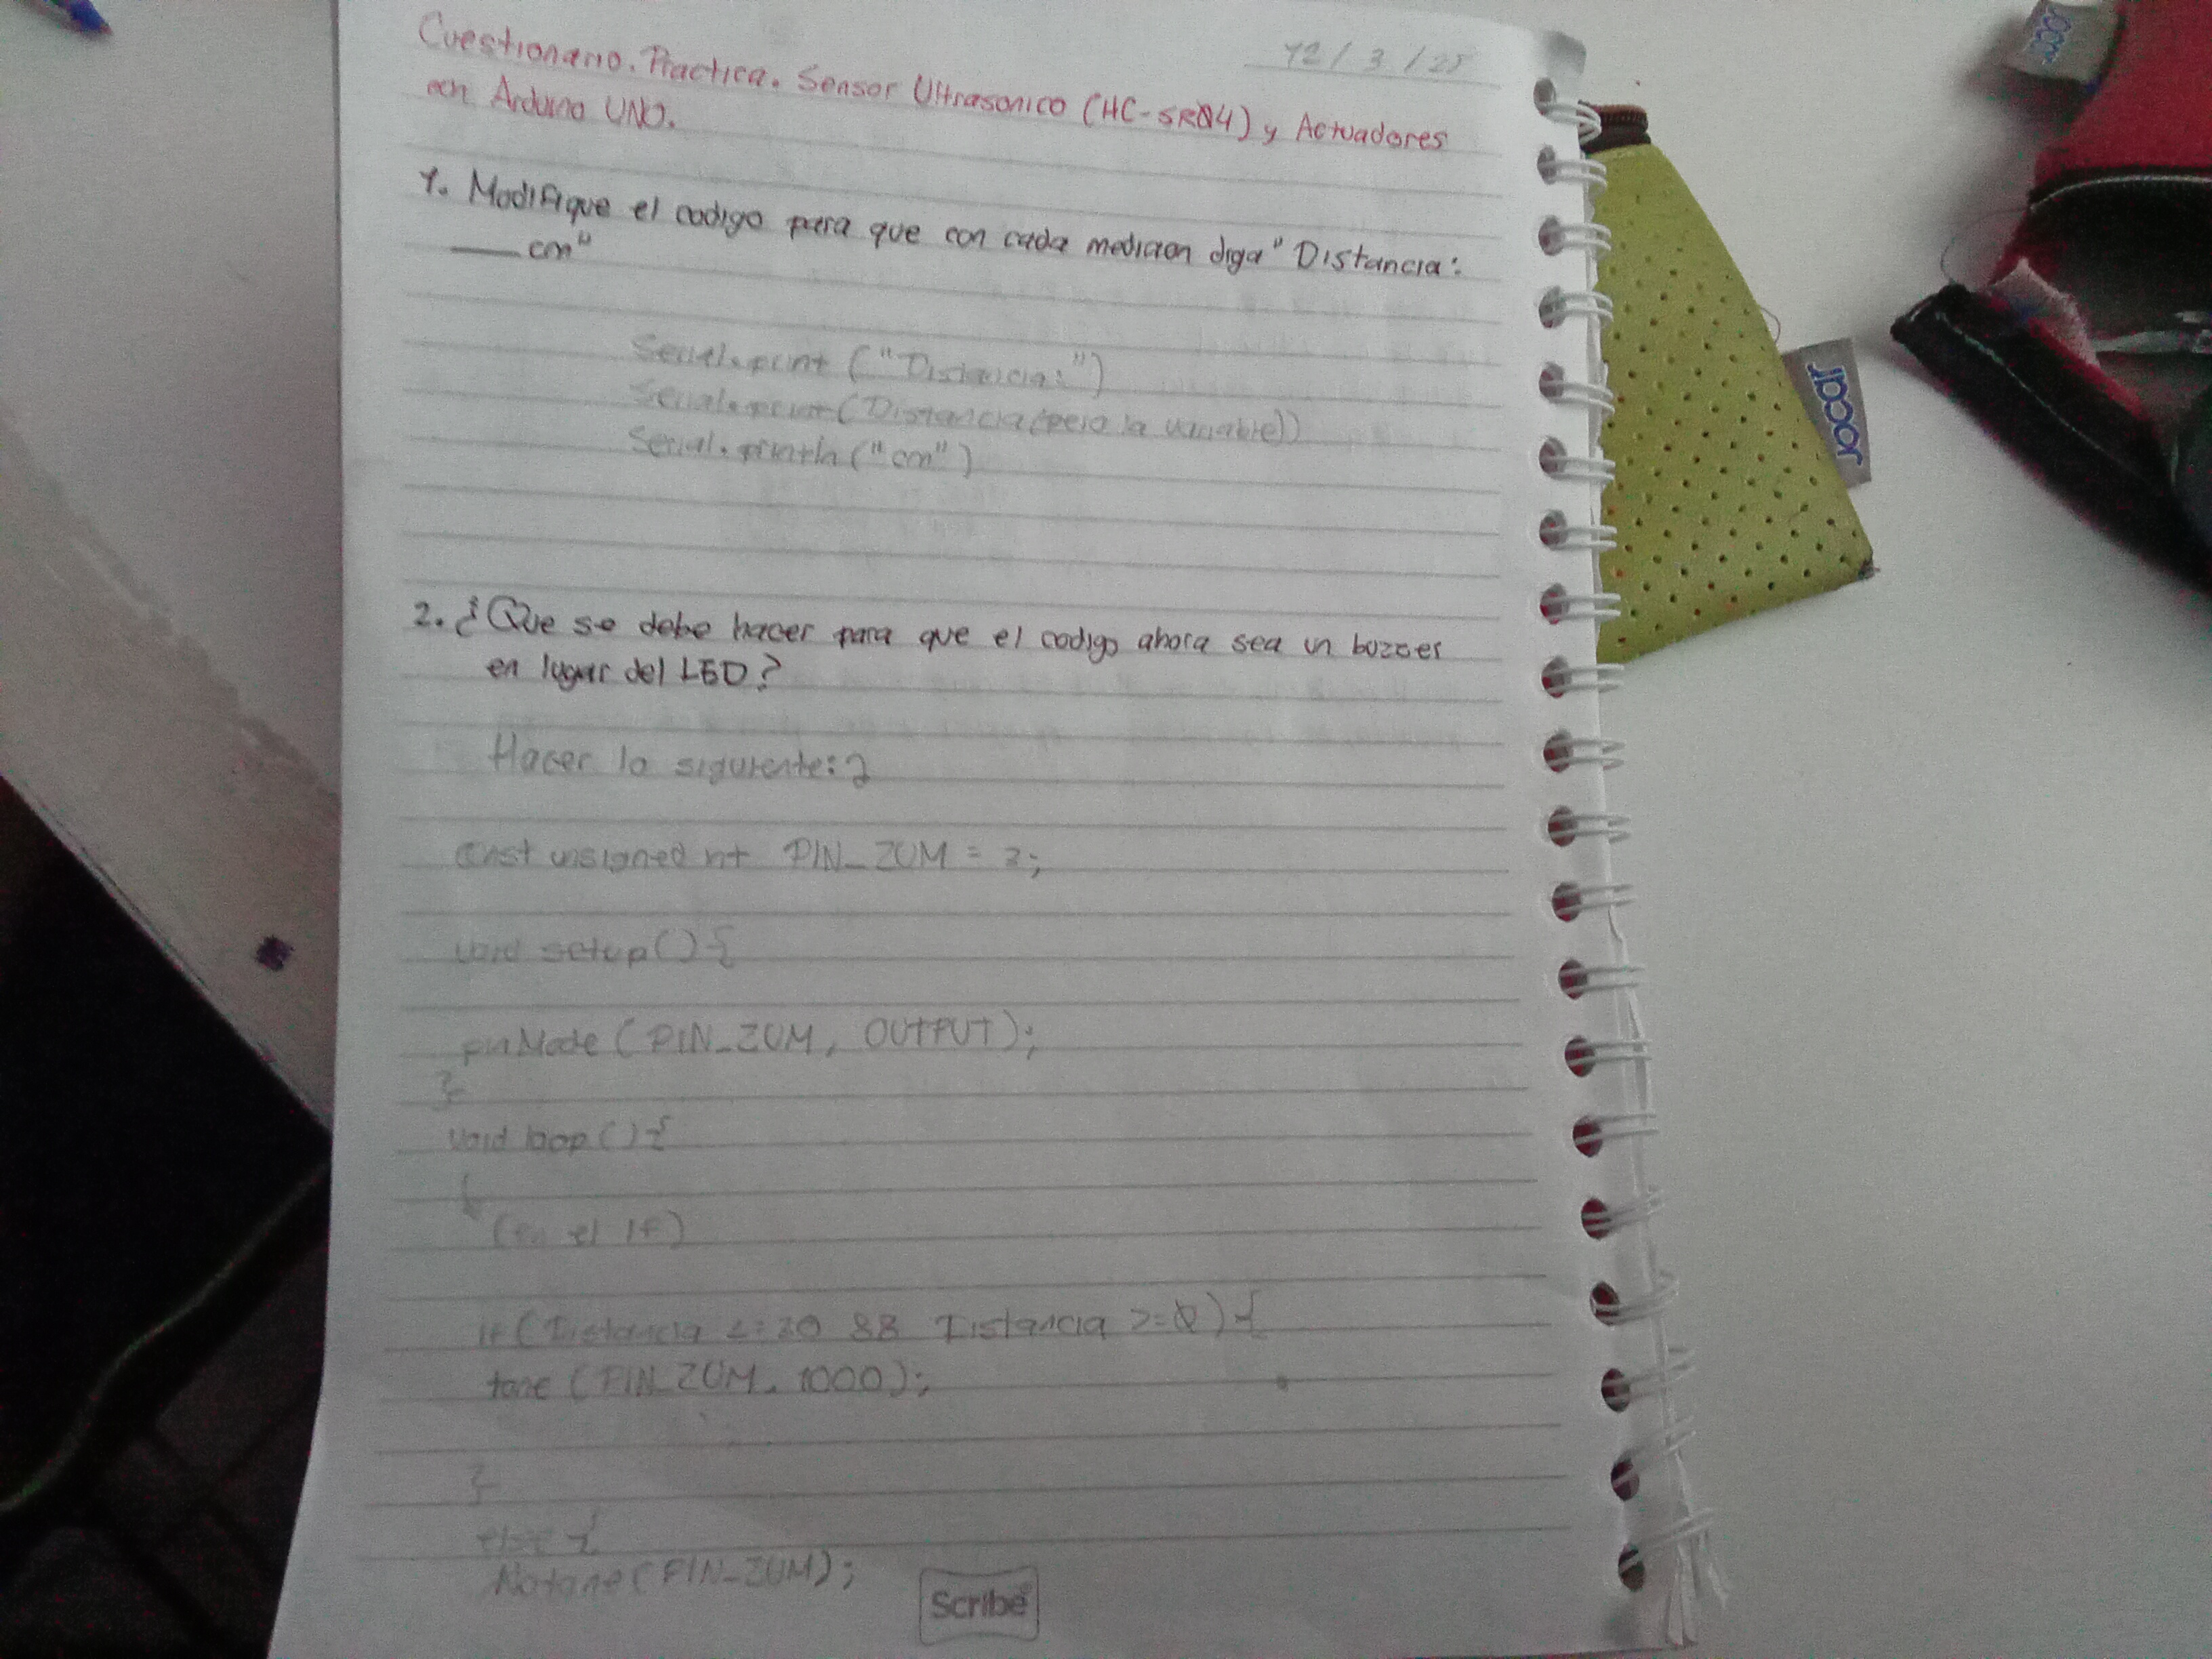 12/3/25
Cuestionario. Practica. Sensor Ultrasonico (HC-SR04) y Actuadores
con Arduino UNO.
1. Modifique el codigo para que con cada medicion diga "Distancia:
___ cm"
Serial.print ("Distancia:")
Serial.print (Distancia (pero la variable))
Serial.println ("cm")
2. ¿Que se debe hacer para que el codigo ahora sea un buzzer
en lugar del LED?
Hacer lo siguiente:
const unsigned int PIN_ZUM = 3;
void setup() {
pinMode (PIN_ZUM, OUTPUT);
}
void loop () {
(en el If)
if (Distancia <= 20 && Distancia >= 0) {
tone (PIN_ZUM, 1000);
}
else {
Notone (PIN_ZUM);
Scribe
Joccar